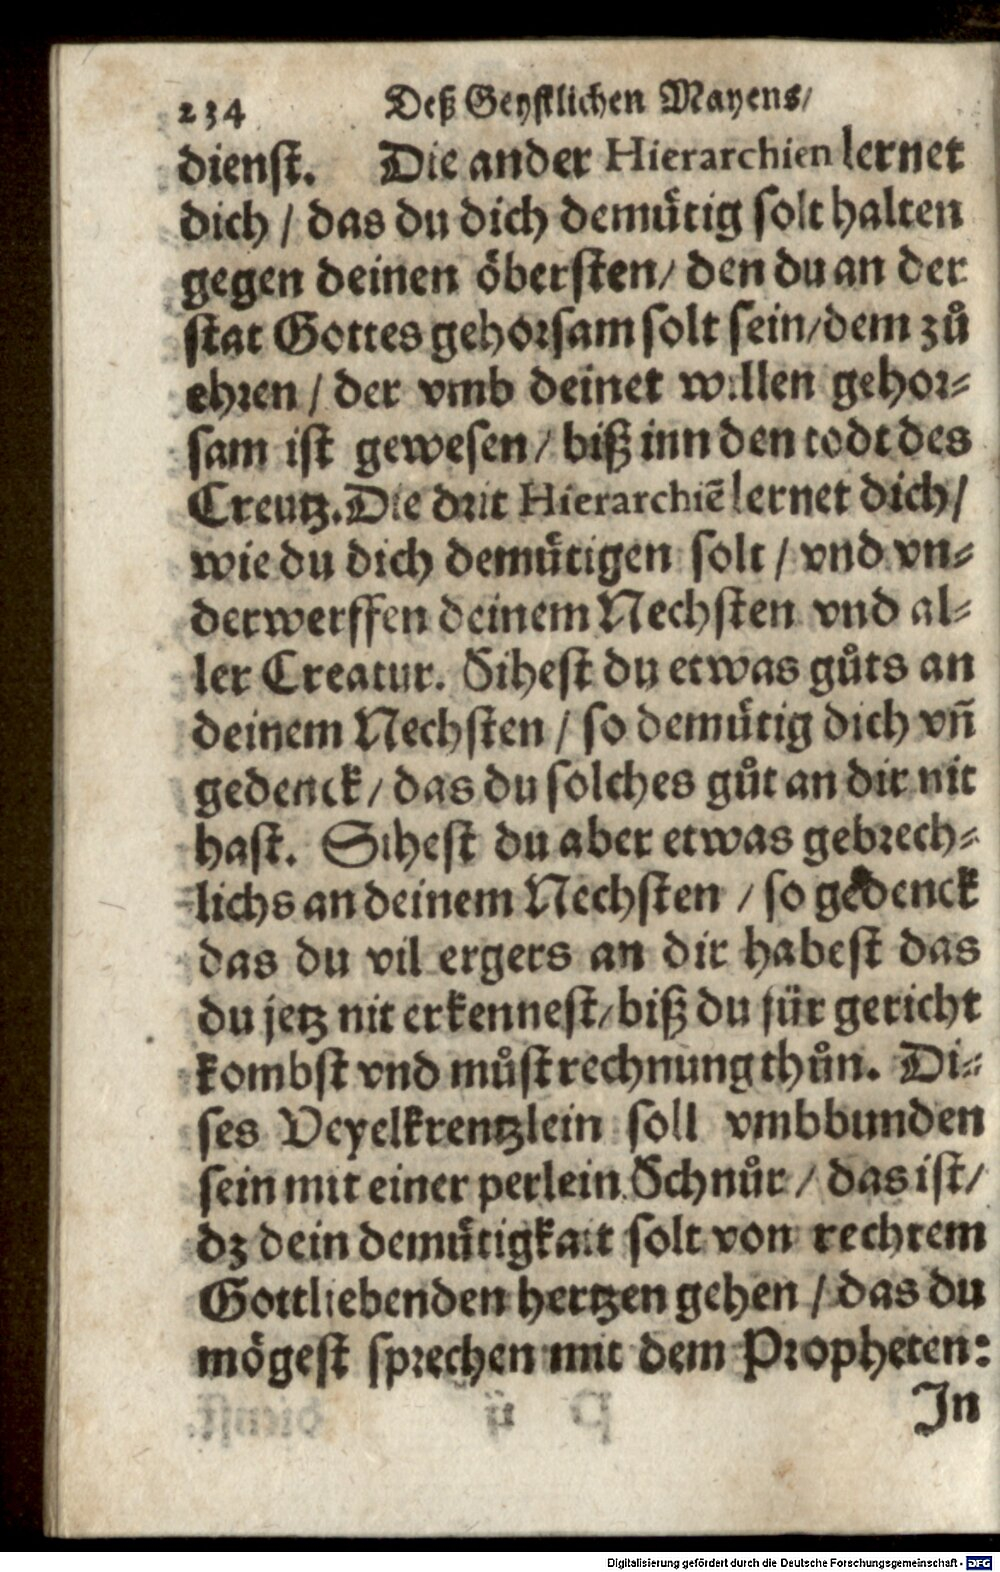 234 Deß Geystlichen Mayens/
dienst. Die ander Hierarchien lernet
dich / das du dich demuͤtig solt halten
gegen deinen oͤbersten/ den du an der
stat Gottes gehorsam solt sein/dem zuͦ
ehren / der vmb deinet willen gehor⸗
sam ist gewesen / biß inn den todt des
Creutz. Die drit Hierarchiẽ lernet dich/
wie du dich demuͤtigen solt / vnd vn⸗
derwerffen deinem Nechsten vnd al⸗
ler Creatur. Sihest du etwas guͦts an
deinem Nechsten / so demuͤtig dich vñ
gedenck / das du solches guͦt an dir nit
hast. Sihest du aber etwas gebrech⸗
lichs an deinem Nechsten / so gedenck
das du vil ergers an dir habest das
du jetz nit erkennest/ biß du für gericht
kombst vnd muͦst rechnung thuͦn. Di⸗
ses Veyelkrentzlein soll vmbbunden
sein mit einer perlein Schnuͦr / das ist/
dz dein demuͤtigkait solt von rechtem
Gottliebenden hertzen gehen / das du
moͤgest sprechen mit dem Propheten:
In
Digitalisierung gefördert durch die Deutsche Forschungsgemeinschaft - DFG